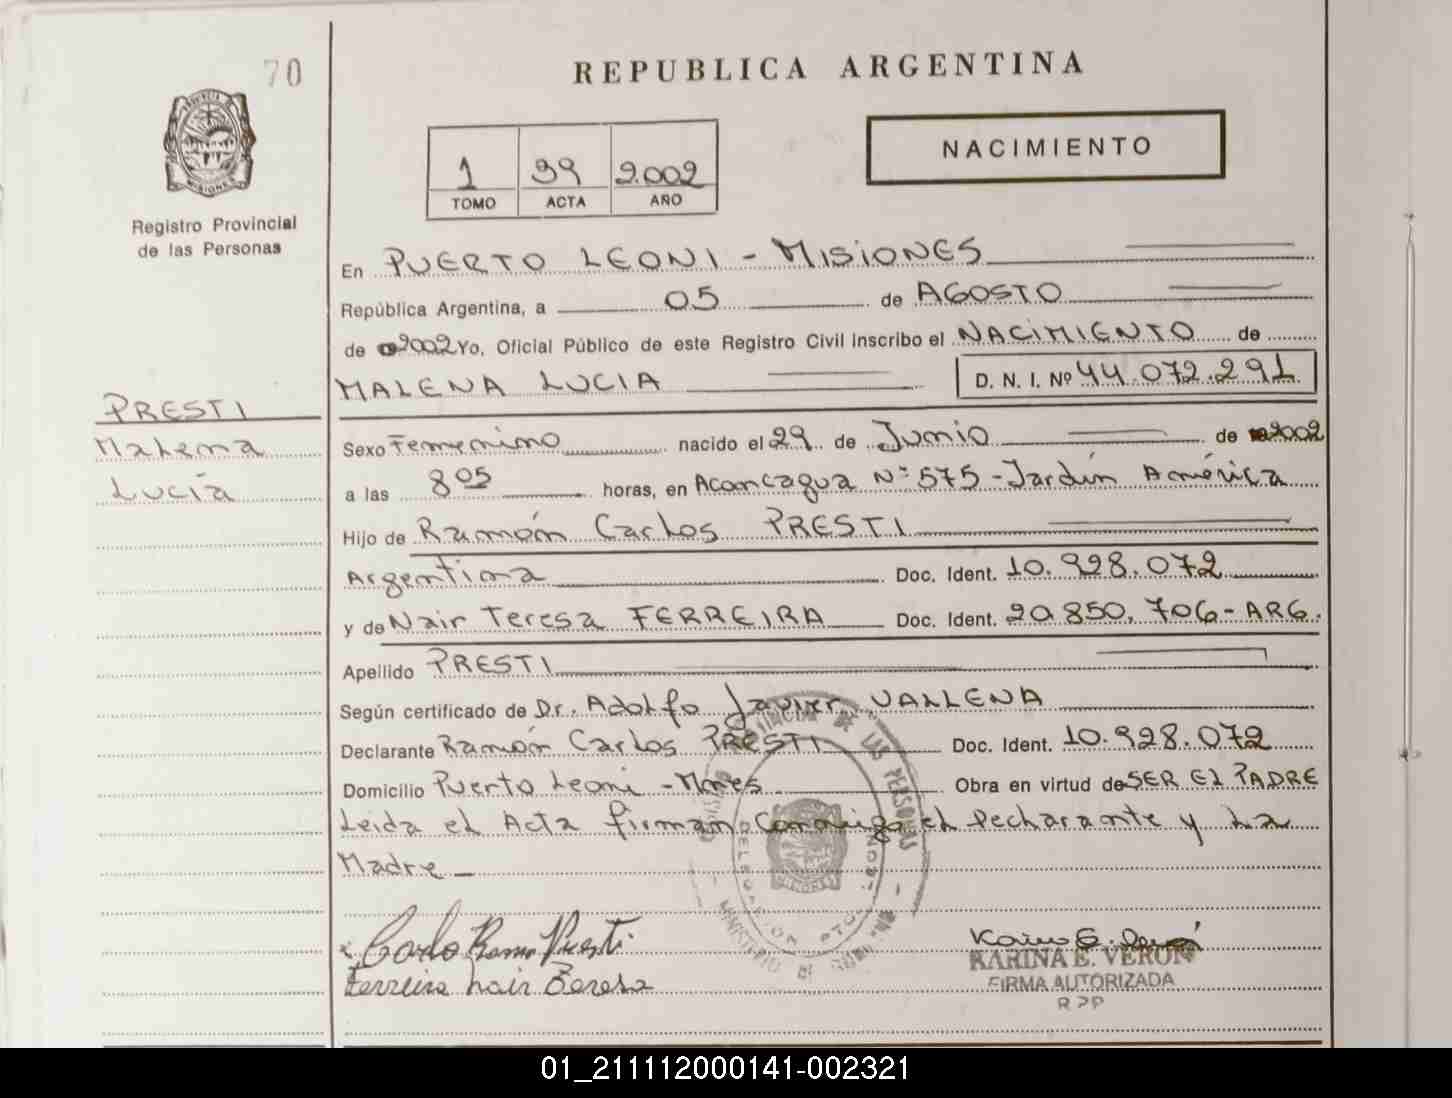 70
REPUBLICA ARGENTINA
NACIMIENTO
1 39 2.002
TOMO ACTA AÑO
MISIONES
Registro Provincial
de las Personas
En PUERTO LEONI - MISIONES
República Argentina, a 05 de AGOSTO
de 2002 Yo, Oficial Público de este Registro Civil inscribo el NACIMIENTO de
MALENA LUCIA D. N. I. Nº 44.072.291
PRESTI
Malena
Lucía
Sexo Femenino nacido el 29 de Junio de 2002
a las 8 05 horas, en Aconcagua Nº 575 - Jardín América
Hijo de Ramón Carlos PRESTI
Argentina Doc. Ident. 10.928.072
y de Nair Teresa FERREIRA Doc. Ident. 20.850.706 - ARG.
Apellido PRESTI
Según certificado de Dr. Adolfo Javier VALLENA
Declarante Ramón Carlos PRESTI Doc. Ident. 10.928.072
Domicilio Puerto Leoni - Mnes Obra en virtud de SER EL PADRE
Leida el Acta firman conmigo el Declarante y la
Madre
Ferreira Nair Teresa
KARINA E. VERON
FIRMA AUTORIZADA
R P P
01_211112000141-002321